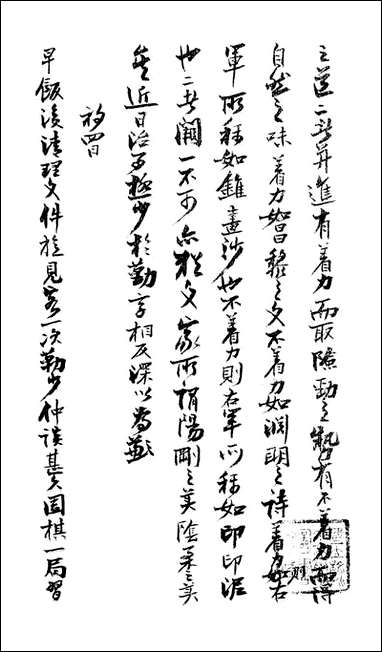 之道二者並進有着力而取險勁之勢有不着力而得
自然之味着力如昌黎之文不着力如淵明之詩着力則右
軍所稱如錐畫沙也不着力則右軍所稱如印印泥
也二者闕一不可亦猶文家所謂陽剛之美陰柔之美
矣近日治事極少於勤字相反深以為歉
初四日
早飯後清理文件旋見客一次勒少仲談甚久圍棋一局習